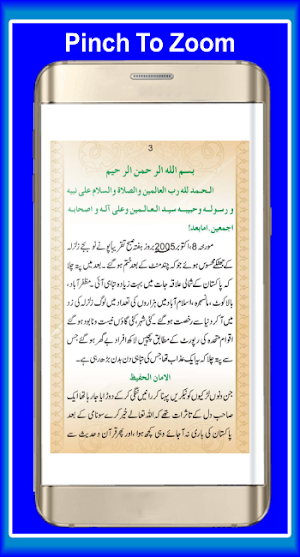 Pinch To Zoom
3
بسم الله الرحمن الرحیم
الحمد لله رب العالمین والصلاة والسلام علی نبیه
و رسوله وحبیبه سید العالمین وعلی آله و اصحابه
اجمعین۔امابعد!
مورخہ 8،اکتوبر 2005 بروز ہفتہ صبح تقریباً پونے نو بجے زلزلہ
کے جھٹکے محسوس ہوئے جو کہ چند منٹ کے بعد ختم ہو گئے۔ بعد میں پتہ چلا
کہ پاکستان کے شمالی علاقہ جات میں بہت زیادہ تباہی آئی۔مظفرآباد،
بالاکوٹ،مانسہرہ،اسلام آباد میں ہزاروں کی تعداد میں لوگ زلزلہ کی زد
میں آ کر دنیا سے رخصت ہو گئے۔ کئی شہر،کئی گاؤں نیست و نابود ہو گئے
اقوام متحدہ کی رپورٹ کے مطابق پچیس لاکھ افراد بے گھر ہو گئے جس
سے پتہ چلا کہ یہ ایک عذاب تھا جس کی تباہی دن بدن بڑھ رہی ہے۔
الامان الحفیظ
جن دنوں لڑکیوں کو نیکریں پہنا کر رانیں ننگی کر کے دوڑایا جا رہا تھا ایک
صاحب دل کے تاثرات تھے کہ اللہ تعالٰی خیر کرے سونامی کے بعد
پاکستان کی باری نہ آ جائے وہی کچھ ہوا،اور پھر قرآن و حدیث سے